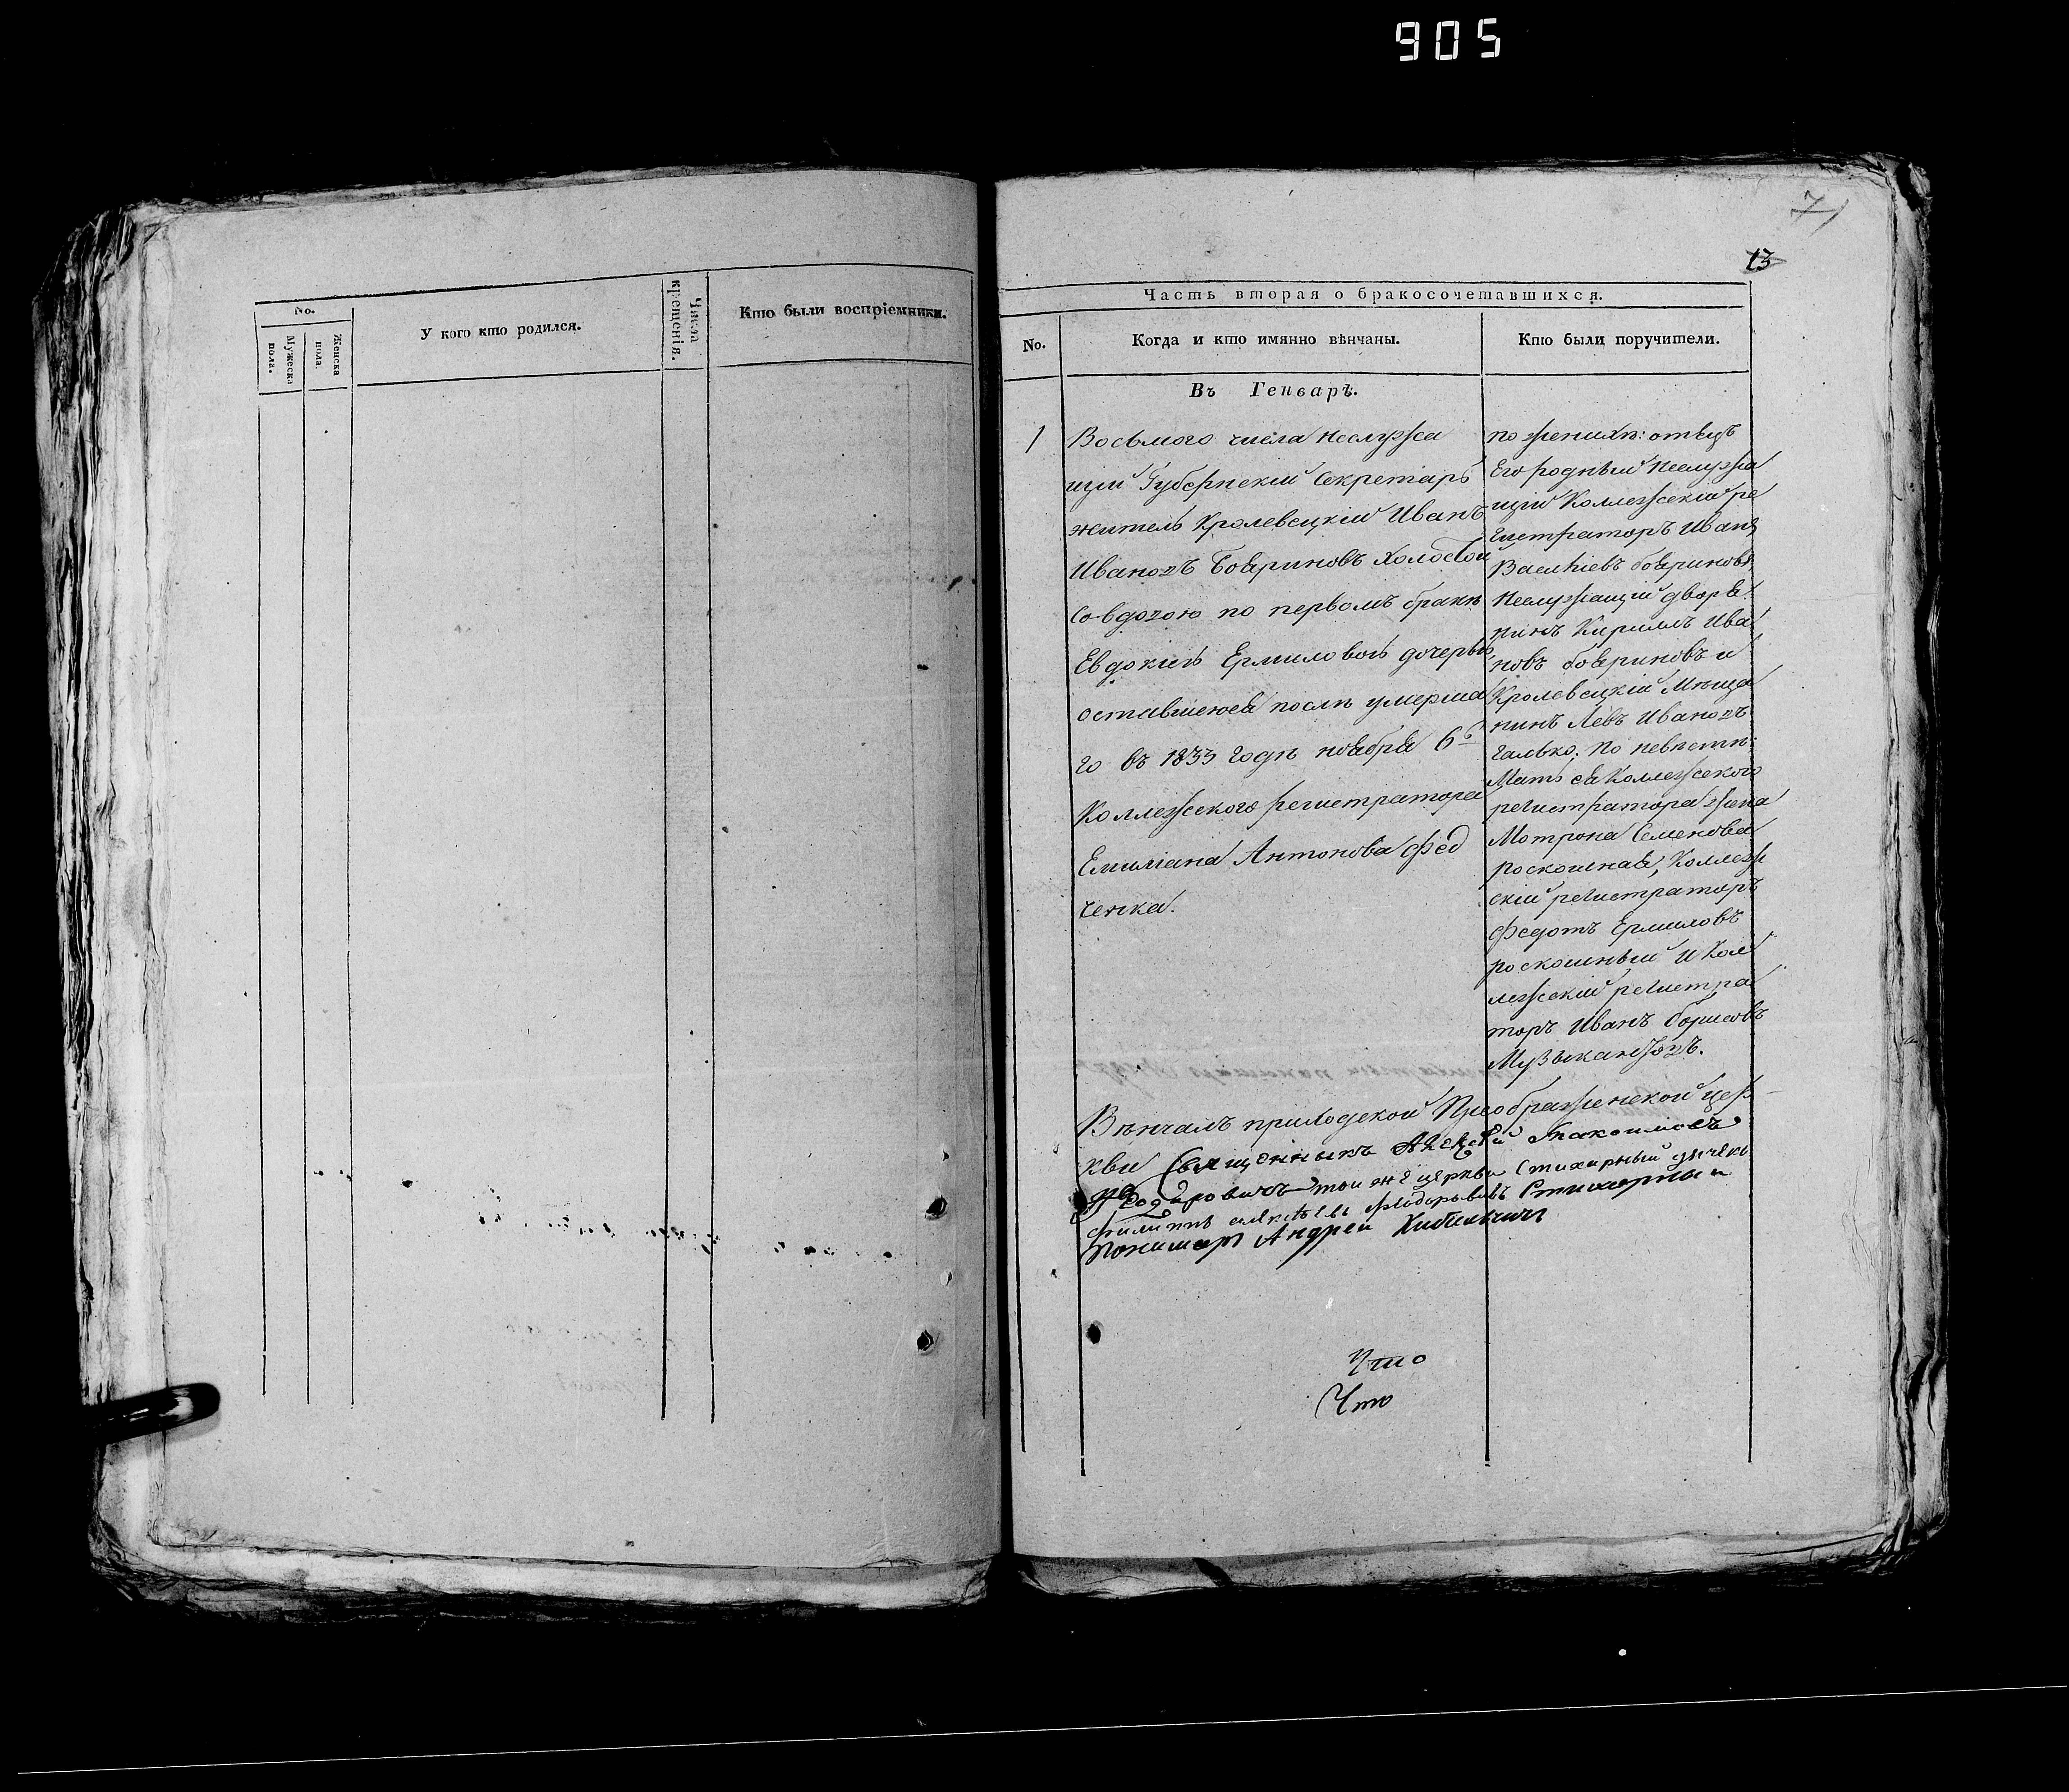 905
71
13
No.
Мужеска пола.
Женска пола.
У кого кто родился.
Числа крещенія.
Кто были воспріемники.
Часть вторая о бракосочетавшихся.
No.
Когда и кто имянно вѣнчаны.
Кто были поручители.
Въ Генварѣ.
1
Восьмого числа неслужа
щій Губернскій Секретарь
житель Кролевецкій Иванъ
Ивановъ Бояриновъ холостой
Со вдовою по первомъ бракѣ
Евдокіею Ермиловою дочерью
оставшеюся послѣ умерша
го въ 1833 годѣ ноября 6
Коллежского регистратора
Емиліана Антонова Фед
ченка.
по женихѣ: отецъ
Его родный неслужа
щій Коллежскій ре
гистраторъ Иванъ
Васильевъ бояриновъ
неслужащій дворя
нинъ Кирилъ Ива
новъ бояриновъ и
Кролевецкій Мѣща
нинъ Левъ Ивановъ
Галько; по невѣстѣ:
Мать ея Коллежского
регистратора жена
Мотрона Семенова
роскошная, Коллеж
скій регистраторъ
Федотъ Ермиловъ
роскошный и Кол
лежскій регистра
торъ Иванъ борисовъ
Музыкантовъ.
Вѣнчалъ приходской Преображенской цер
кви Священникъ Алексѣй
той же церкви Стихарный дьячекъ
Филиппъ Стихарный
Пономарь Андрей
Что
Что